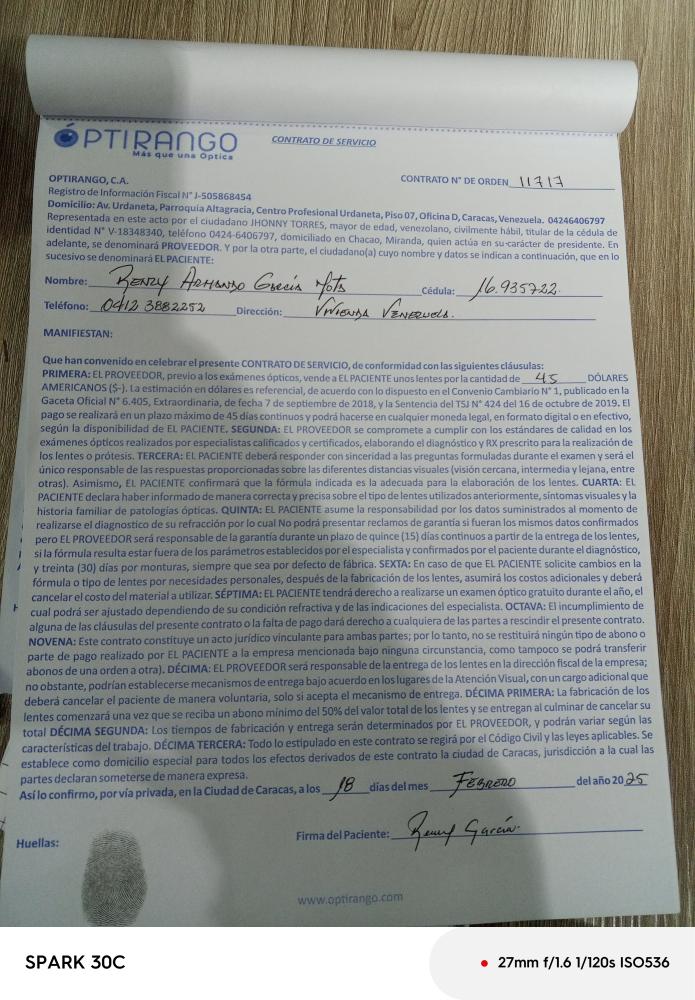 ÓPTIRANGO
Más que una Optica
CONTRATO DE SERVICIO
OPTIRANGO, C.A.
CONTRATO N° DE ORDEN 11717
Registro de Información Fiscal N° J-505868454
Domicilio: Av. Urdaneta, Parroquia Altagracia, Centro Profesional Urdaneta, Piso 07, Oficina D, Caracas, Venezuela. 04246406797
Representada en este acto por el ciudadano JHONNY TORRES, mayor de edad, venezolano, civilmente hábil, titular de la cédula de
identidad N° V-18348340, teléfono 0424-6406797, domiciliado en Chacao, Miranda, quien actúa en su carácter de presidente. En
adelante, se denominará PROVEEDOR. Y por la otra parte, el ciudadano(a) cuyo nombre y datos se indican a continuación, que en lo
sucesivo se denominará EL PACIENTE:
Nombre: Renzy Armando García Mota Cédula: 16.935722.
Teléfono: 0412 3882252 Dirección: Vivienda Venezuela.
MANIFIESTAN:
Que han convenido en celebrar el presente CONTRATO DE SERVICIO, de conformidad con las siguientes cláusulas:
PRIMERA: EL PROVEEDOR, previo a los exámenes ópticos, vende a EL PACIENTE unos lentes por la cantidad de 45 DÓLARES
AMERICANOS ($-). La estimación en dólares es referencial, de acuerdo con lo dispuesto en el Convenio Cambiario N° 1, publicado en la
Gaceta Oficial N° 6.405, Extraordinaria, de fecha 7 de septiembre de 2018, y la Sentencia del TSJ N° 424 del 16 de octubre de 2019. El
pago se realizará en un plazo máximo de 45 días continuos y podrá hacerse en cualquier moneda legal, en formato digital o en efectivo,
según la disponibilidad de EL PACIENTE. SEGUNDA: EL PROVEEDOR se compromete a cumplir con los estándares de calidad en los
exámenes ópticos realizados por especialistas calificados y certificados, elaborando el diagnóstico y RX prescrito para la realización de
los lentes o prótesis. TERCERA: EL PACIENTE deberá responder con sinceridad a las preguntas formuladas durante el examen y será el
único responsable de las respuestas proporcionadas sobre las diferentes distancias visuales (visión cercana, intermedia y lejana, entre
otras). Asimismo, EL PACIENTE confirmará que la fórmula indicada es la adecuada para la elaboración de los lentes. CUARTA: EL
PACIENTE declara haber informado de manera correcta y precisa sobre el tipo de lentes utilizados anteriormente, síntomas visuales y la
historia familiar de patologías ópticas. QUINTA: EL PACIENTE asume la responsabilidad por los datos suministrados al momento de
realizarse el diagnostico de su refracción por lo cual No podrá presentar reclamos de garantía si fueran los mismos datos confirmados
pero EL PROVEEDOR será responsable de la garantía durante un plazo de quince (15) días continuos a partir de la entrega de los lentes,
si la fórmula resulta estar fuera de los parámetros establecidos por el especialista y confirmados por el paciente durante el diagnóstico,
y treinta (30) días por monturas, siempre que sea por defecto de fábrica. SEXTA: En caso de que EL PACIENTE solicite cambios en la
fórmula o tipo de lentes por necesidades personales, después de la fabricación de los lentes, asumirá los costos adicionales y deberá
cancelar el costo del material a utilizar. SÉPTIMA: EL PACIENTE tendrá derecho a realizarse un examen óptico gratuito durante el año, el
cual podrá ser ajustado dependiendo de su condición refractiva y de las indicaciones del especialista. OCTAVA: El incumplimiento de
alguna de las cláusulas del presente contrato o la falta de pago dará derecho a cualquiera de las partes a rescindir el presente contrato.
NOVENA: Este contrato constituye un acto jurídico vinculante para ambas partes; por lo tanto, no se restituirá ningún tipo de abono o
parte de pago realizado por EL PACIENTE a la empresa mencionada bajo ninguna circunstancia, como tampoco se podrá transferir
abonos de una orden a otra). DÉCIMA: EL PROVEEDOR será responsable de la entrega de los lentes en la dirección fiscal de la empresa;
no obstante, podrían establecerse mecanismos de entrega bajo acuerdo en los lugares de la Atención Visual, con un cargo adicional que
deberá cancelar el paciente de manera voluntaria, solo si acepta el mecanismo de entrega. DÉCIMA PRIMERA: La fabricación de los
lentes comenzará una vez que se reciba un abono mínimo del 50% del valor total de los lentes y se entregan al culminar de cancelar su
total DÉCIMA SEGUNDA: Los tiempos de fabricación y entrega serán determinados por EL PROVEEDOR, y podrán variar según las
características del trabajo. DÉCIMA TERCERA: Todo lo estipulado en este contrato se regirá por el Código Civil y las leyes aplicables. Se
establece como domicilio especial para todos los efectos derivados de este contrato la ciudad de Caracas, jurisdicción a la cual las
partes declaran someterse de manera expresa.
Así lo confirmo, por vía privada, en la Ciudad de Caracas, a los 18 días del mes Febrero del año 2025
Huellas:
Firma del Paciente: Renzy García
www.optirango.com
SPARK 30C
27mm f/1.6 1/120s ISO536